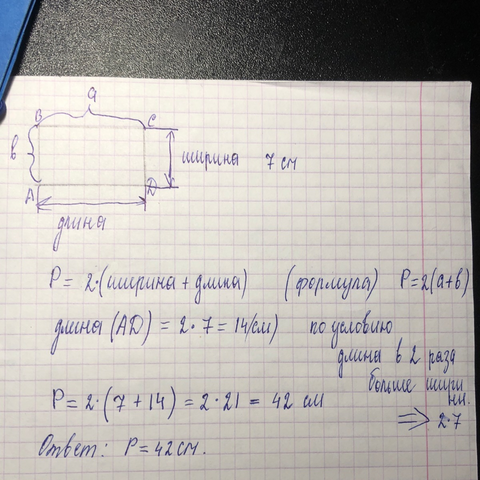 a
B C
в ширина 7 см
A D
длина
P = 2·(ширина + длина) (формула) P=2(a+в)
длина (AD) = 2·7 = 14(см) по условию
длина в 2 раза
больше шири
нн.
P = 2·(7 + 14) = 2·21 = 42 см ⇒ 2·7
Ответ: P = 42 см.